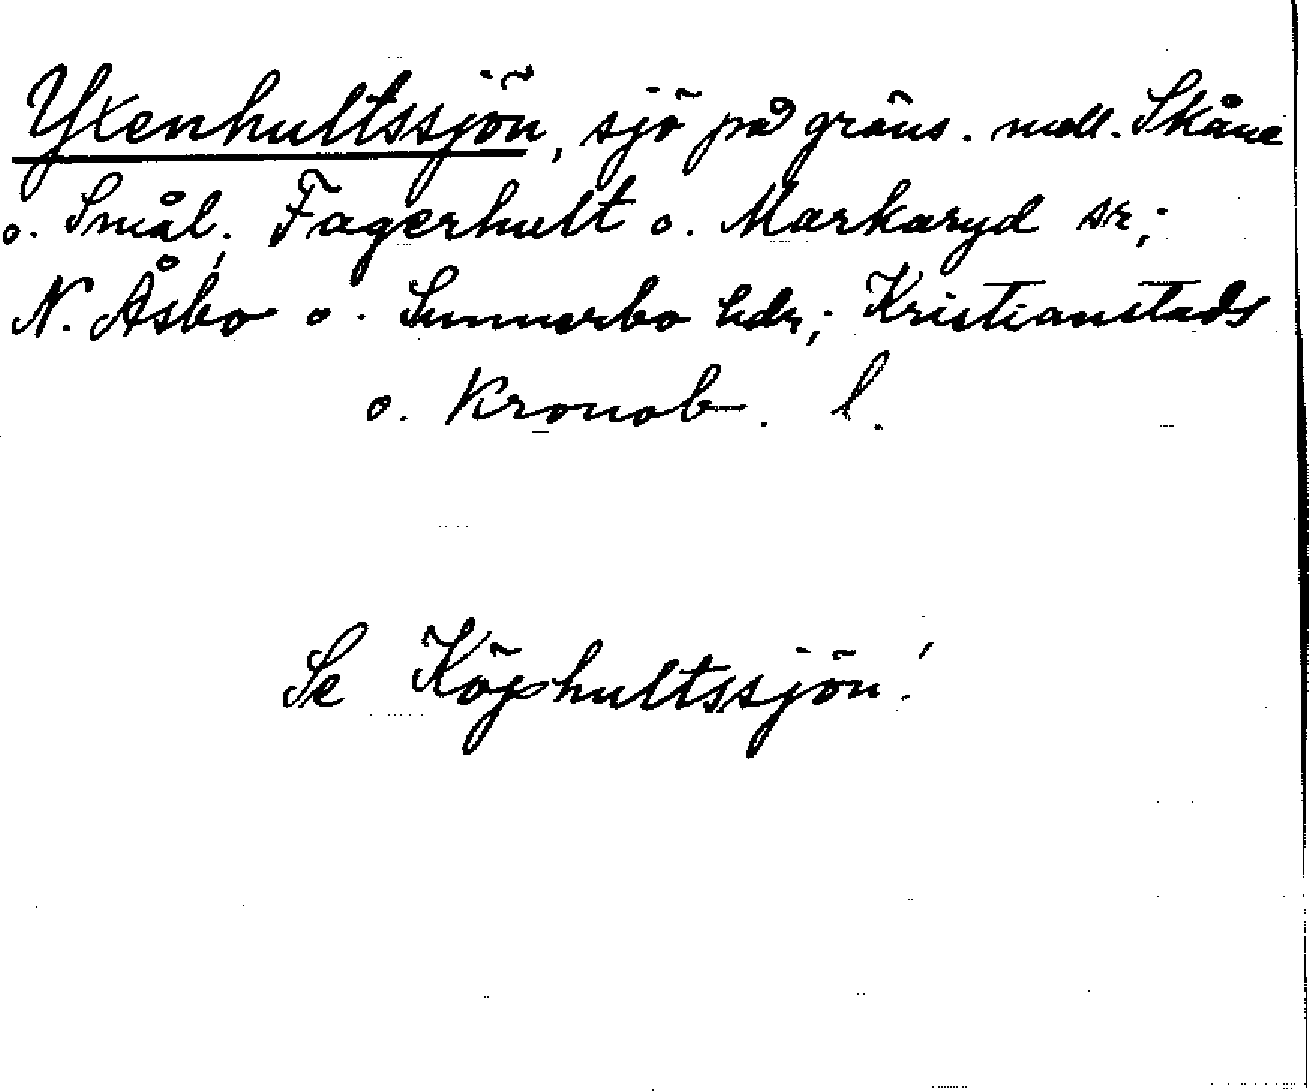 Yxenhultssjön, sjö på gräns. mell. Skåne
o. Smål., Fagerhult o. Markaryd sr;
N. Åsbo o. Sunnerbo hdr; Kristianstads
o. Kronob. l.
Se Köphultssjön!